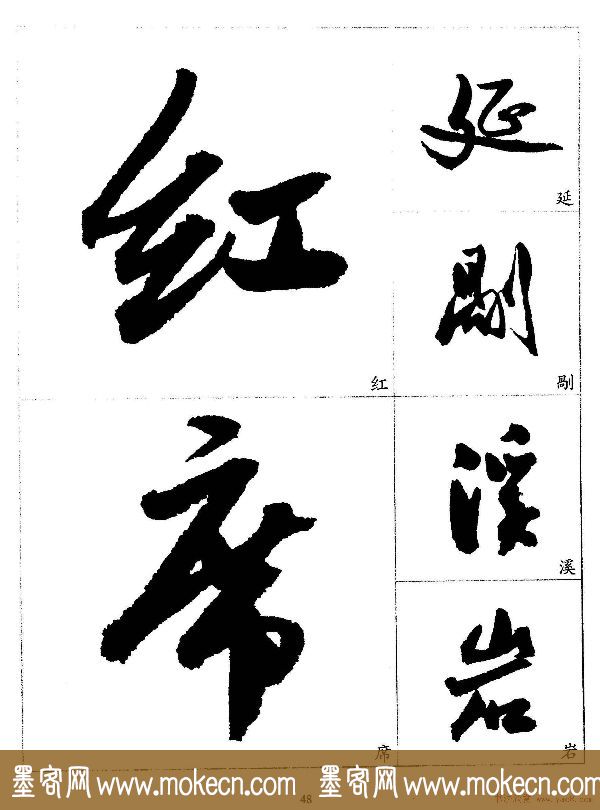 延
延
剮
剮
溪
溪
岩
岩
红
红
席
席
墨客网 www.mokecn.com 墨客网 www.mokecn.com
48